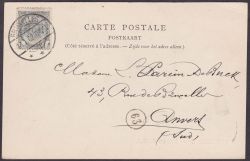 CARTE POSTALE
POSTKAART
(Côté réservé à l'adresse. — Zijde voor het adres alleen.)
Maison L. Parin
43, Rue de Bruxelles
Anvers
(Sud)
63